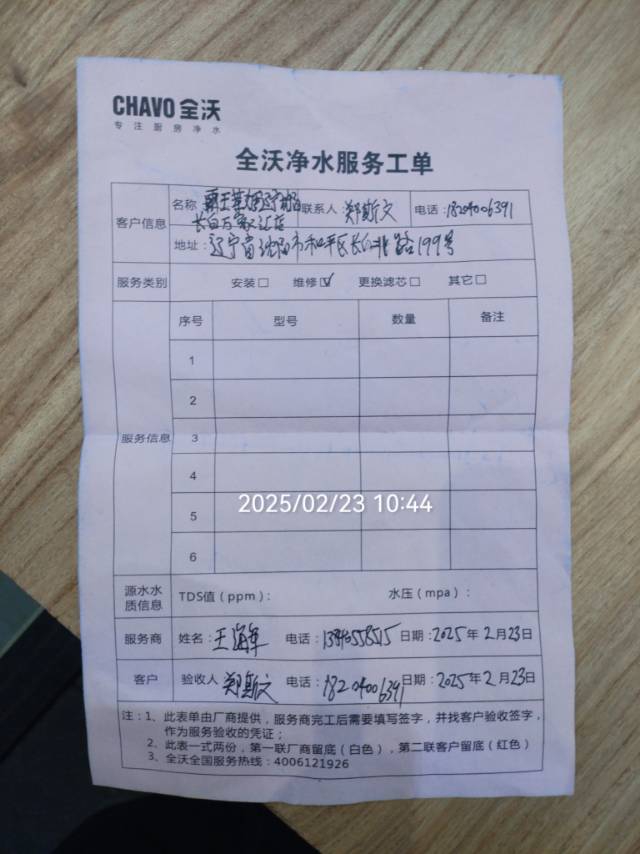 CHAVO 全沃
专注厨房净水
全沃净水服务工单
客户信息
名称 霸王茶姬 联系人 郑斯文 电话:18204006391
长白万象汇店
地址: 辽宁省沈阳市和平区长白北路199号
服务类别 安装□ 维修☑ 更换滤芯□ 其它□
服务信息
序号 型号 数量 备注
1
2
3
4
5
6
2025/02/23 10:44
源水水质信息 TDS值(ppm): 水压(mpa):
服务商 姓名: 王海军 电话: 日期:2025年2月23日
客户 验收人 郑斯文 电话:18204006391 日期:2025年2月23日
注:1、此表单由厂商提供,服务商完工后需要填写签字,并找客户验收签字,
作为服务验收的凭证;
2、此表一式两份,第一联厂商留底(白色),第二联客户留底(红色)
3、全沃全国服务热线:4006121926